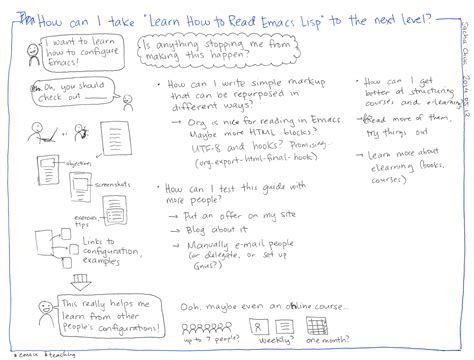 How can I take "Learn How to Read Emacs Lisp" to the next level?
Sacha Chua
I want to learn
how to configure
Emacs!
Is anything stopping me from
making this happen?
Oh, you should
check out
• How can I write simple markup
that can be repurposed in
different ways?
→ Org is nice for reading in Emacs.
Maybe more HTML blocks?
UTF-8 and hooks? Promising...
(org-export-html-final-hook)
• How can I get
better at structuring
courses and e-learning?
→ Read more of them,
try things out
→ Learn more about
elearning (books,
courses)
objectives
screenshots
exercises,
tips
Links to
configuration,
examples
• How can I test this guide with
more people?
→ Put an offer on my site
→ Blog about it
→ Manually e-mail people
(or delegate, or set up
Gnus?)
This really helps me
learn from other
people's configurations!
Ooh, maybe even an online course...
up to 7 people?
8
weekly?
one month?
#emacs #teaching